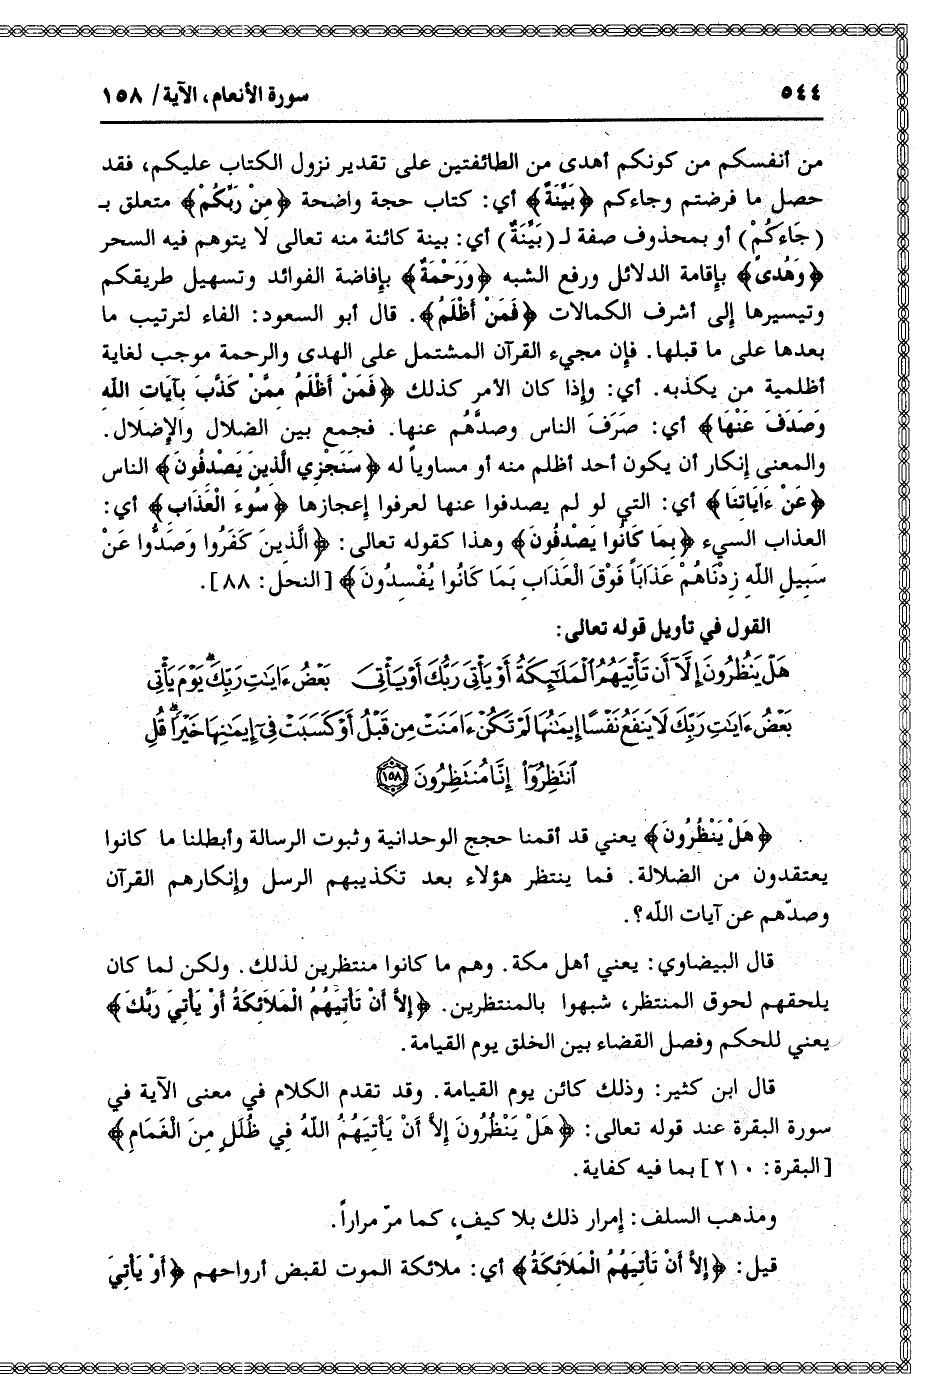 ٥٤٤ سورة الأنعام، الآية/ ١٥٨
من أنفسكم من كونكم أهدى من الطائفتين على تقدير نزول الكتاب عليكم، فقد
حصل ما فرضتم وجاءكم ﴿بَيِّنَةٌ﴾ أي: كتاب حجة واضحة ﴿مِنْ رَبِّكُمْ﴾ متعلق بـ
(جَاءَكُمْ) أو بمحذوف صفة لـ (بَيِّنَةٌ) أي: بينة كائنة منه تعالى لا يتوهم فيه السحر
﴿وَهُدىً﴾ بإقامة الدلائل ورفع الشبه ﴿وَرَحْمَةٌ﴾ بإفاضة الفوائد وتسهيل طريقكم
وتيسيرها إلى أشرف الكمالات ﴿فَمَنْ أَظْلَمُ﴾. قال أبو السعود: الفاء لترتيب ما
بعدها على ما قبلها. فإن مجيء القرآن المشتمل على الهدى والرحمة موجب لغاية
أظلمية من يكذبه. أي: وإذا كان الأمر كذلك ﴿فَمَنْ أَظْلَمُ مِمَّنْ كَذَّبَ بِآيَاتِ اللَّهِ
وَصَدَفَ عَنْهَا﴾ أي: صَرَفَ الناس وصدَّهُم عنها. فجمع بين الضلال والإضلال.
والمعنى إنكار أن يكون أحد أظلم منه أو مساوياً له ﴿سَنَجْزِي الَّذِينَ يَصْدِفُونَ﴾ الناس
﴿عَنْ ءَايَاتِنَا﴾ أي: التي لو لم يصدفوا عنها لعرفوا إعجازها ﴿سُوءَ الْعَذَابِ﴾ أي:
العذاب السيء ﴿بِمَا كَانُوا يَصْدِفُونَ﴾ وهذا كقوله تعالى: ﴿الَّذِينَ كَفَرُوا وَصَدُّوا عَنْ
سَبِيلِ اللَّهِ زِدْنَاهُمْ عَذَاباً فَوْقَ الْعَذَابِ بِمَا كَانُوا يُفْسِدُونَ﴾ [النحل: ٨٨].
القول في تأويل قوله تعالى:
هَلْ يَنظُرُونَ إِلَّآ أَن تَأْتِيَهُمُ ٱلْمَلَٰٓئِكَةُ أَوْ يَأْتِىَ رَبُّكَ أَوْ يَأْتِىَ بَعْضُ ءَايَٰتِ رَبِّكَ ۗ يَوْمَ يَأْتِى
بَعْضُ ءَايَٰتِ رَبِّكَ لَا يَنفَعُ نَفْسًا إِيمَٰنُهَا لَمْ تَكُنْ ءَامَنَتْ مِن قَبْلُ أَوْ كَسَبَتْ فِىٓ إِيمَٰنِهَا خَيْرًا ۗ قُلِ
ٱنتَظِرُوٓا۟ إِنَّا مُنتَظِرُونَ ١٥٨
﴿هَلْ يَنْظُرُونَ﴾ يعني قد أقمنا حجج الوحدانية وثبوت الرسالة وأبطلنا ما كانوا
يعتقدون من الضلالة. فما ينتظر هؤلاء بعد تكذيبهم الرسل وإنكارهم القرآن
وصدّهم عن آيات اللّه؟.
قال البيضاوي: يعني أهل مكة. وهم ما كانوا منتظرين لذلك. ولكن لما كان
يلحقهم لحوق المنتظر، شبهوا بالمنتظرين. ﴿إِلاَّ أَنْ تَأْتِيَهُمُ الْمَلَائِكَةُ أَوْ يَأْتِيَ رَبُّكَ﴾
يعني للحكم وفصل القضاء بين الخلق يوم القيامة.
قال ابن كثير: وذلك كائن يوم القيامة. وقد تقدم الكلام في معنى الآية في
سورة البقرة عند قوله تعالى: ﴿هَلْ يَنْظُرُونَ إِلاَّ أَنْ يَأْتِيَهُمُ اللَّهُ فِي ظُلَلٍ مِنَ الْغَمَامِ﴾
[البقرة: ٢١٠] بما فيه كفاية.
ومذهب السلف: إمرار ذلك بلا كيفٍ، كما مرّ مراراً.
قيل: ﴿إِلاَّ أَنْ تَأْتِيَهُمُ الْمَلَائِكَةُ﴾ أي: ملائكة الموت لقبض أرواحهم ﴿أَوْ يَأْتِيَ